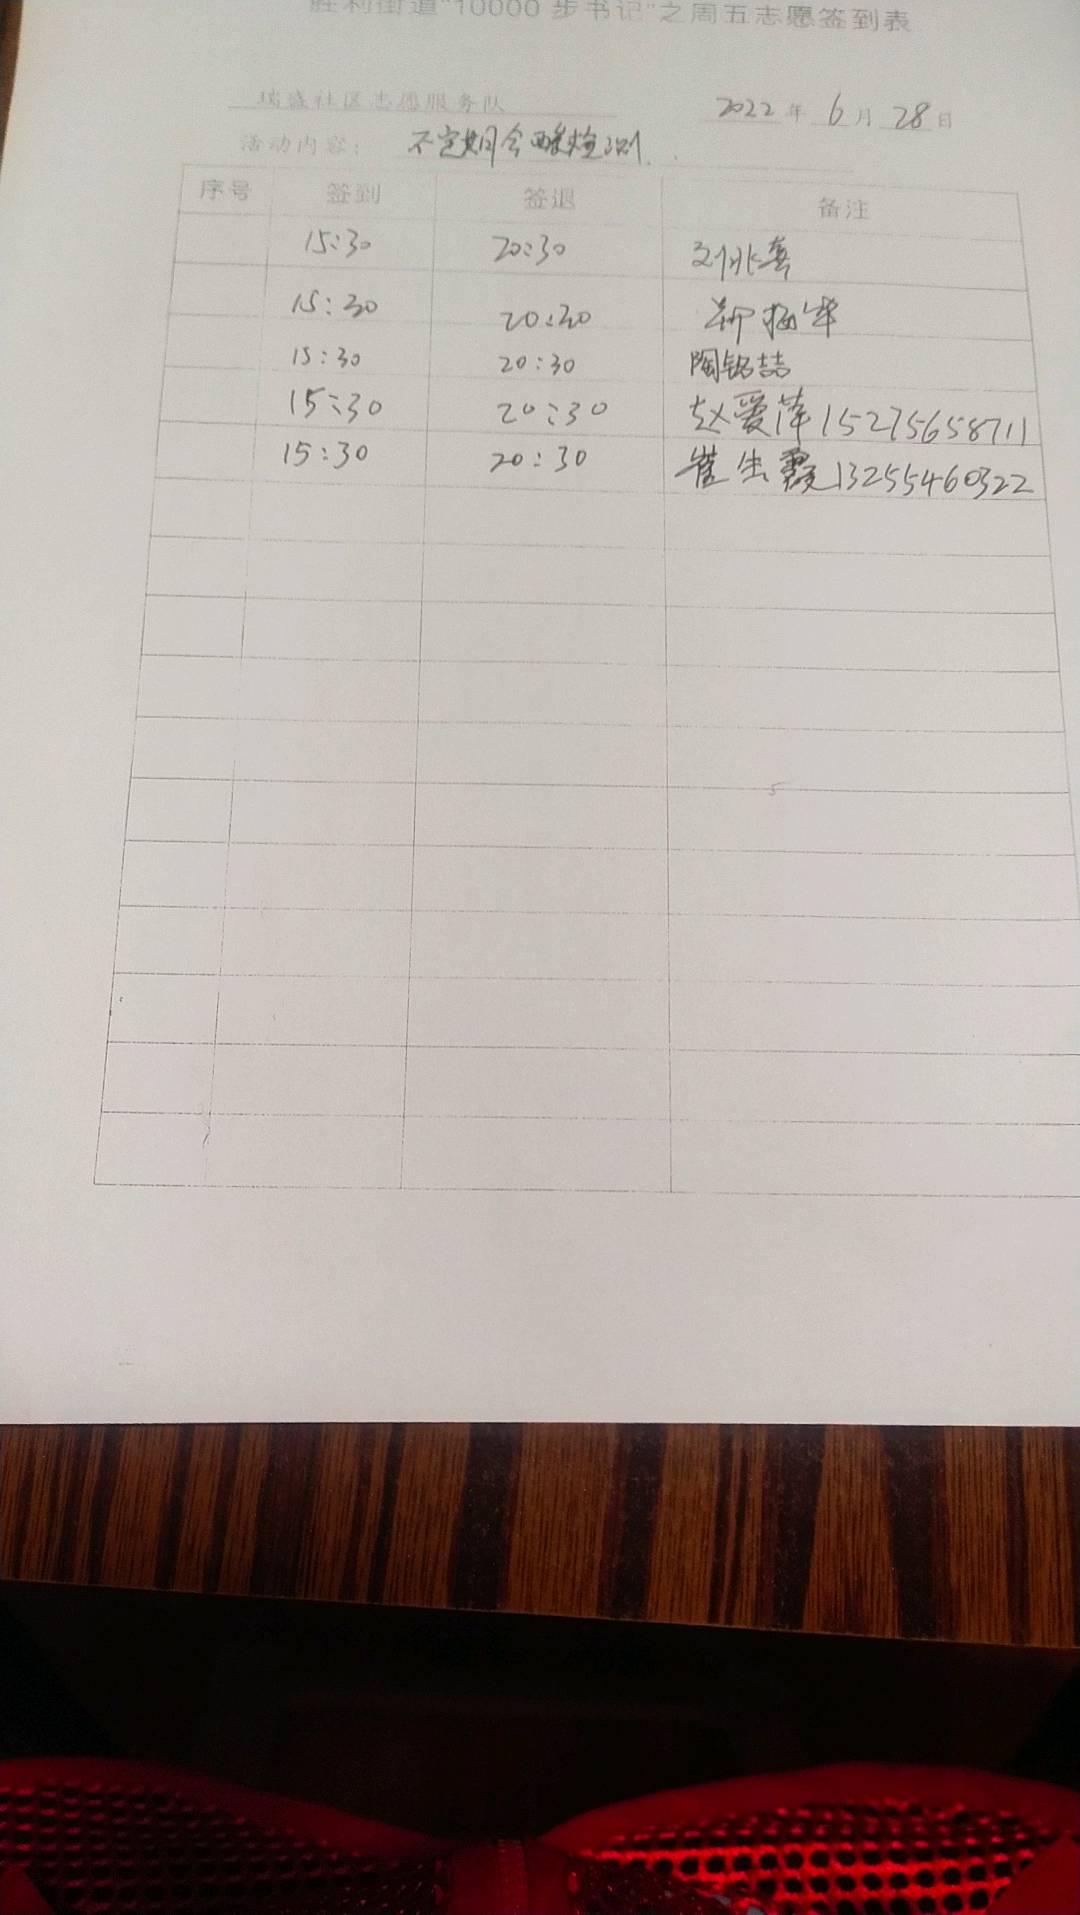 胜利街道"10000步书记"之周五志愿签到表
瑞盛社区志愿服务队 2022年6月28日
活动内容: 不定期全酸检测.
序号 签到 签退 备注
15:30 20:30 刘兆喜
15:30 20:30 郑梅华
15:30 20:30 陶铭喆
15:30 20:30 赵爱萍15275658711
15:30 20:30 崔生霞13255460322